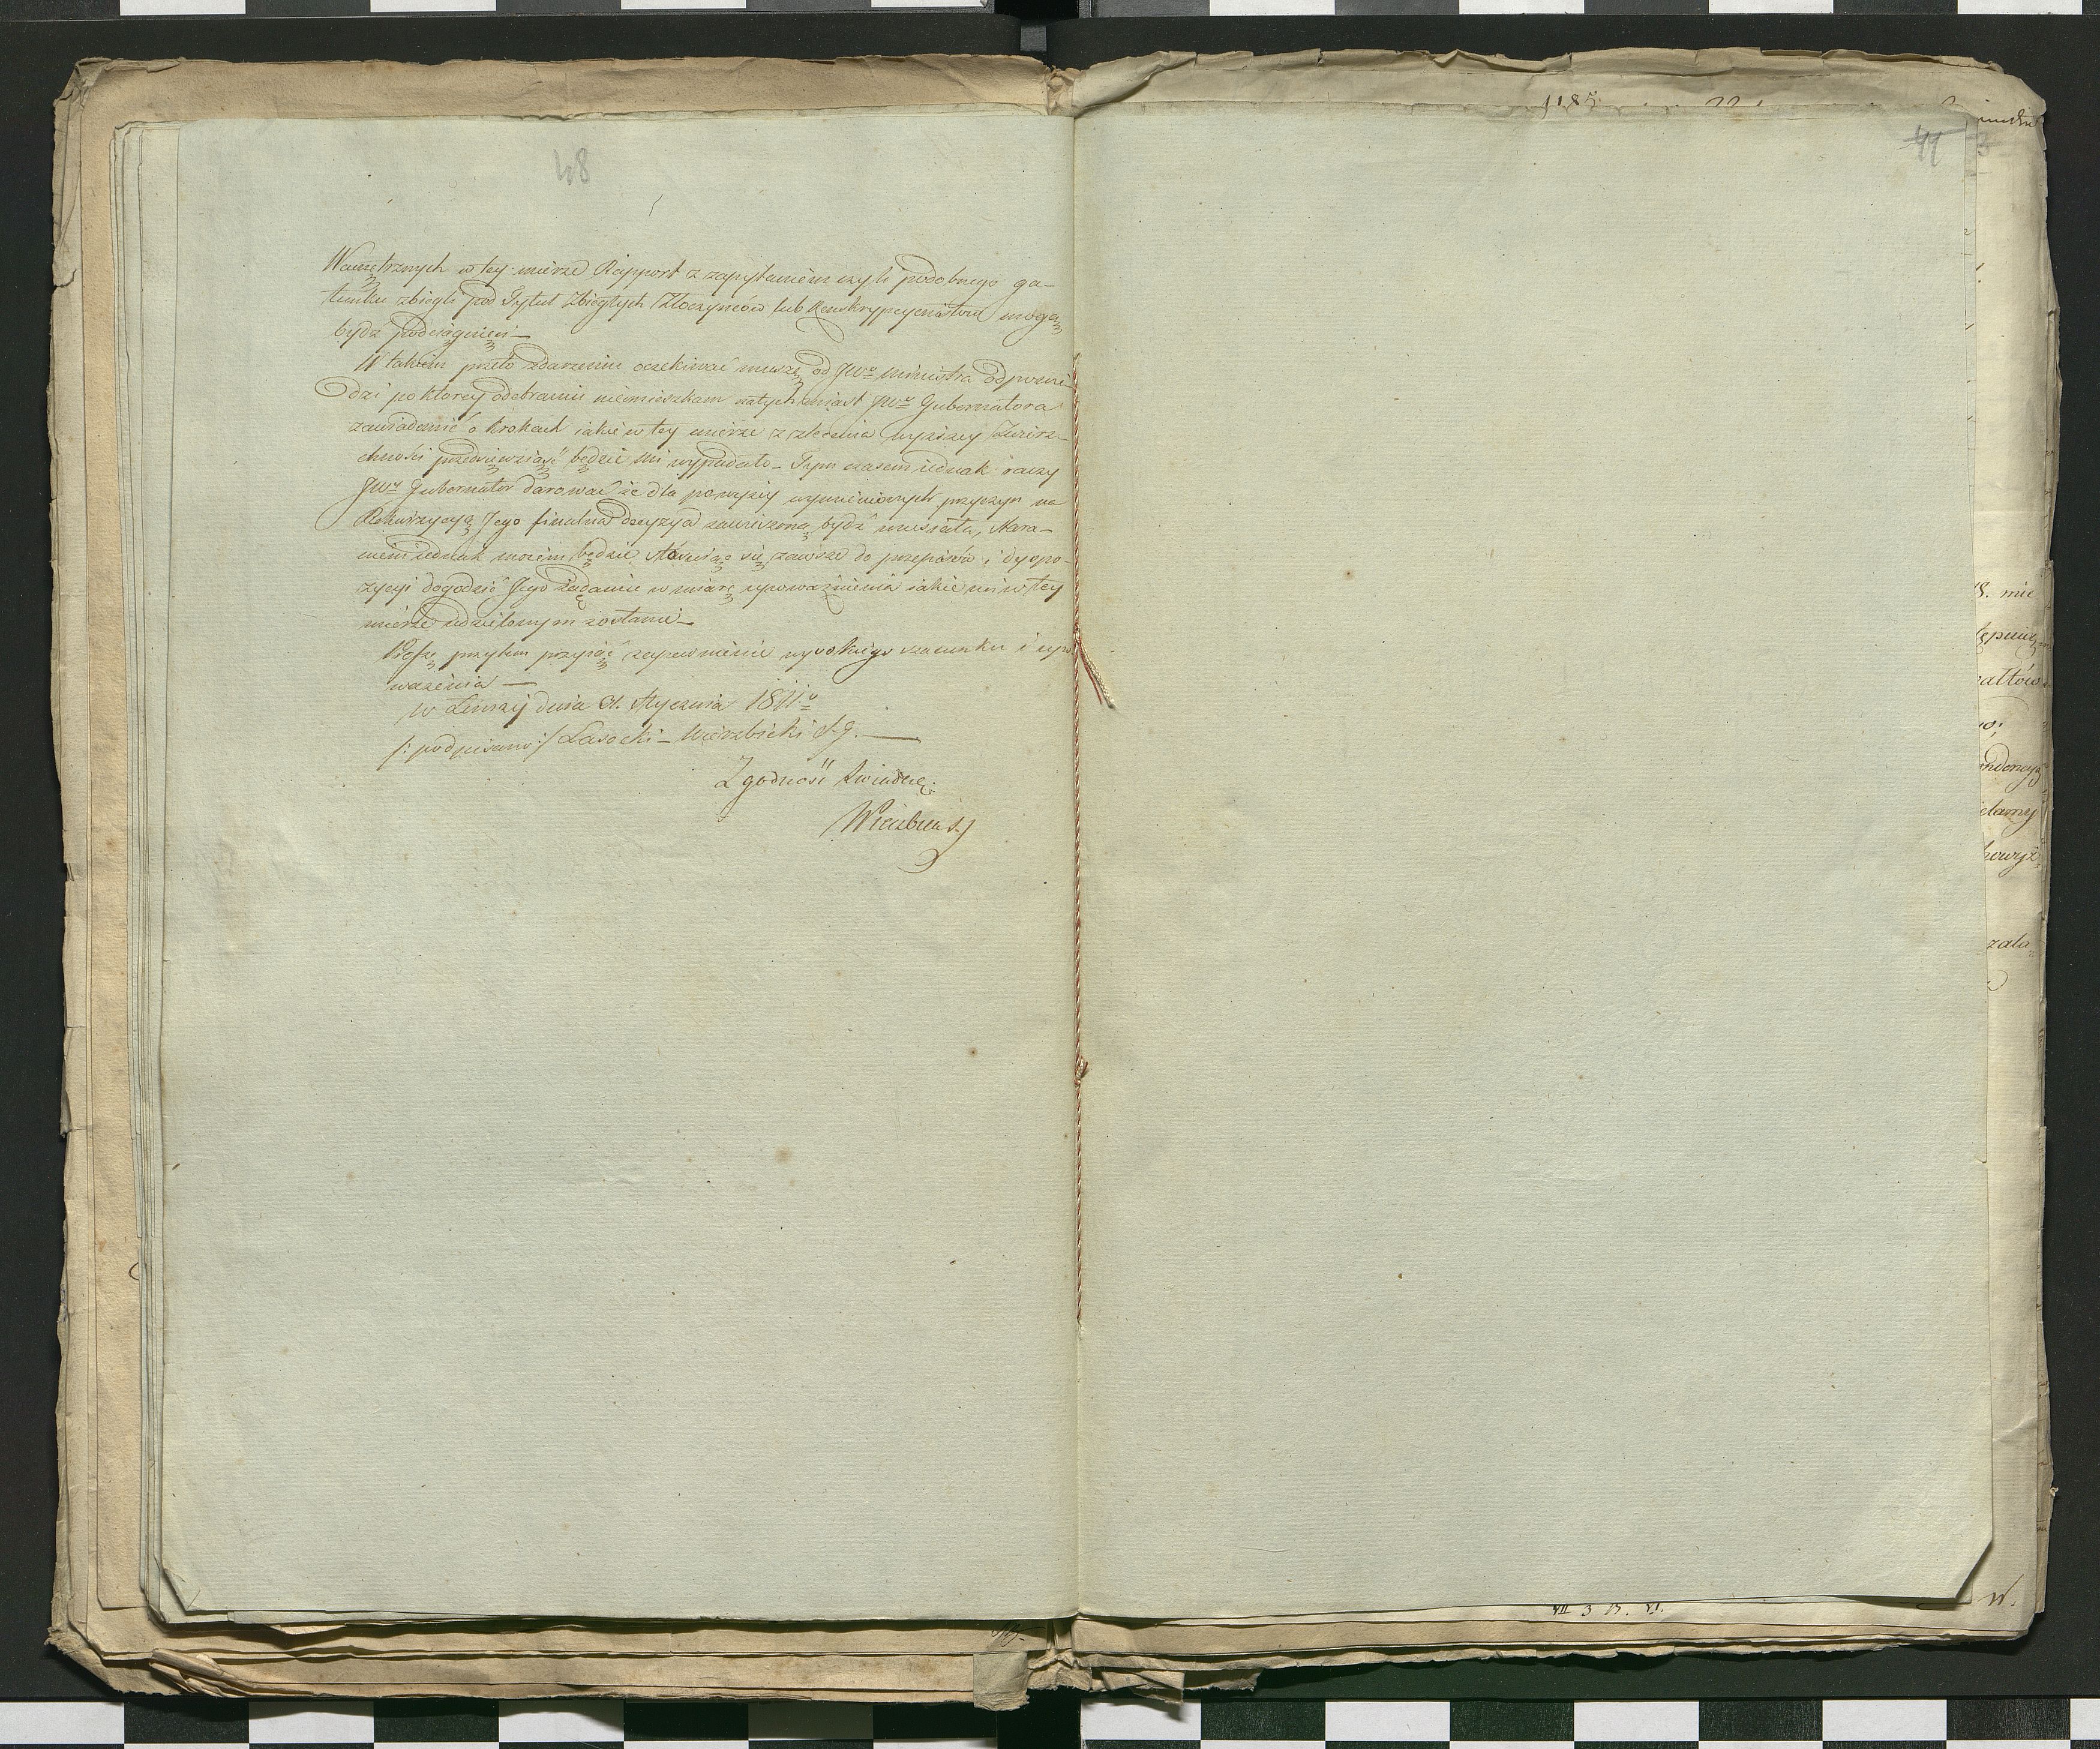 48
Wewnętrznych w tey mierze Rapport z zapytaniem czyli podobnego ga-
tunku zbiegli pod Tytuł Zbiegłych Złoczyńców lub Konskrypcyonistow mogą
bydź podciągnieni
W takiem przeto zdarzeniu oczekiwać muszę od JWo Ministra odpowie-
dzi po ktorey odebraniu nieomieszkam natychmiast JWo Gubernatora
zawiadomić o krokach iakie w tey mierze z zlecenia wyższey Zwierz-
chności przedsiewziąść będzie mi wypadało - Tym czasem iednak raczy
JWy Gubernator darować że dla powyżey wymienionych przyczyn na
Rekwizycyą Jego finalna decyzya zawieszoną bydź musiała, Stara-
niem iednak moiem będzie stosuiąc się zawsze do przepisów i dyspo-
zycyi dogodzić Jego żądaniu w miarę upoważnienia iakie mi w tey
mierze udzielonym zostanie
Proszę przytem przyiąć zapewnienie wysokiego szacunku i upo
ważenia —
w Łomży dnia 31. Stycznia 1811o
/: podpisano :/ Lasocki - Wierzbicki S. J. —
Zgodność świadczę:
Wierzbicki
44
3
1185
18. mie
zala
W.